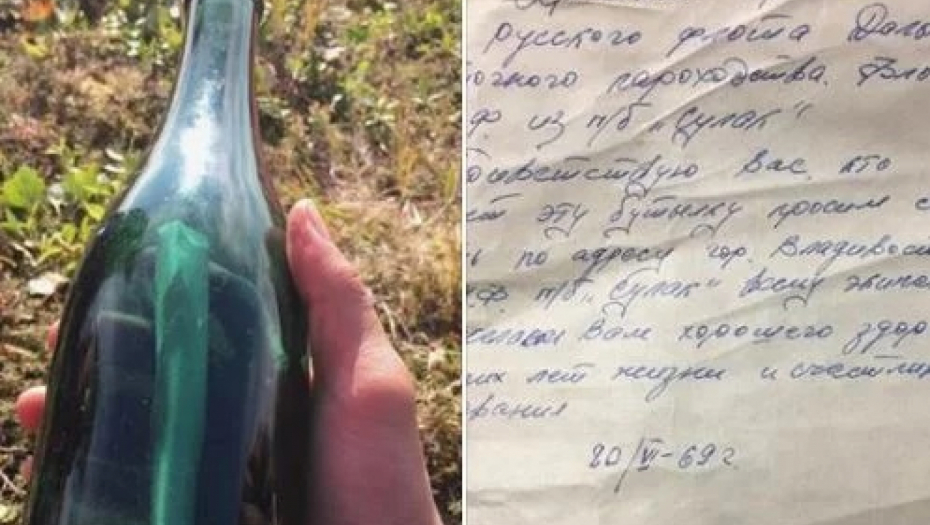 Русского флота Даль
точного пароходства. Флы
Ф. из п/б „Сулак"
Приветствую Вас, кто
ет эту бутылку просим с
ь по адресу гор. Владивост
Ф. п/б „Сулак" всему экипа
желаем Вам хорошего здор
их лет жизни и счастлив
вания
20/VI-69 г